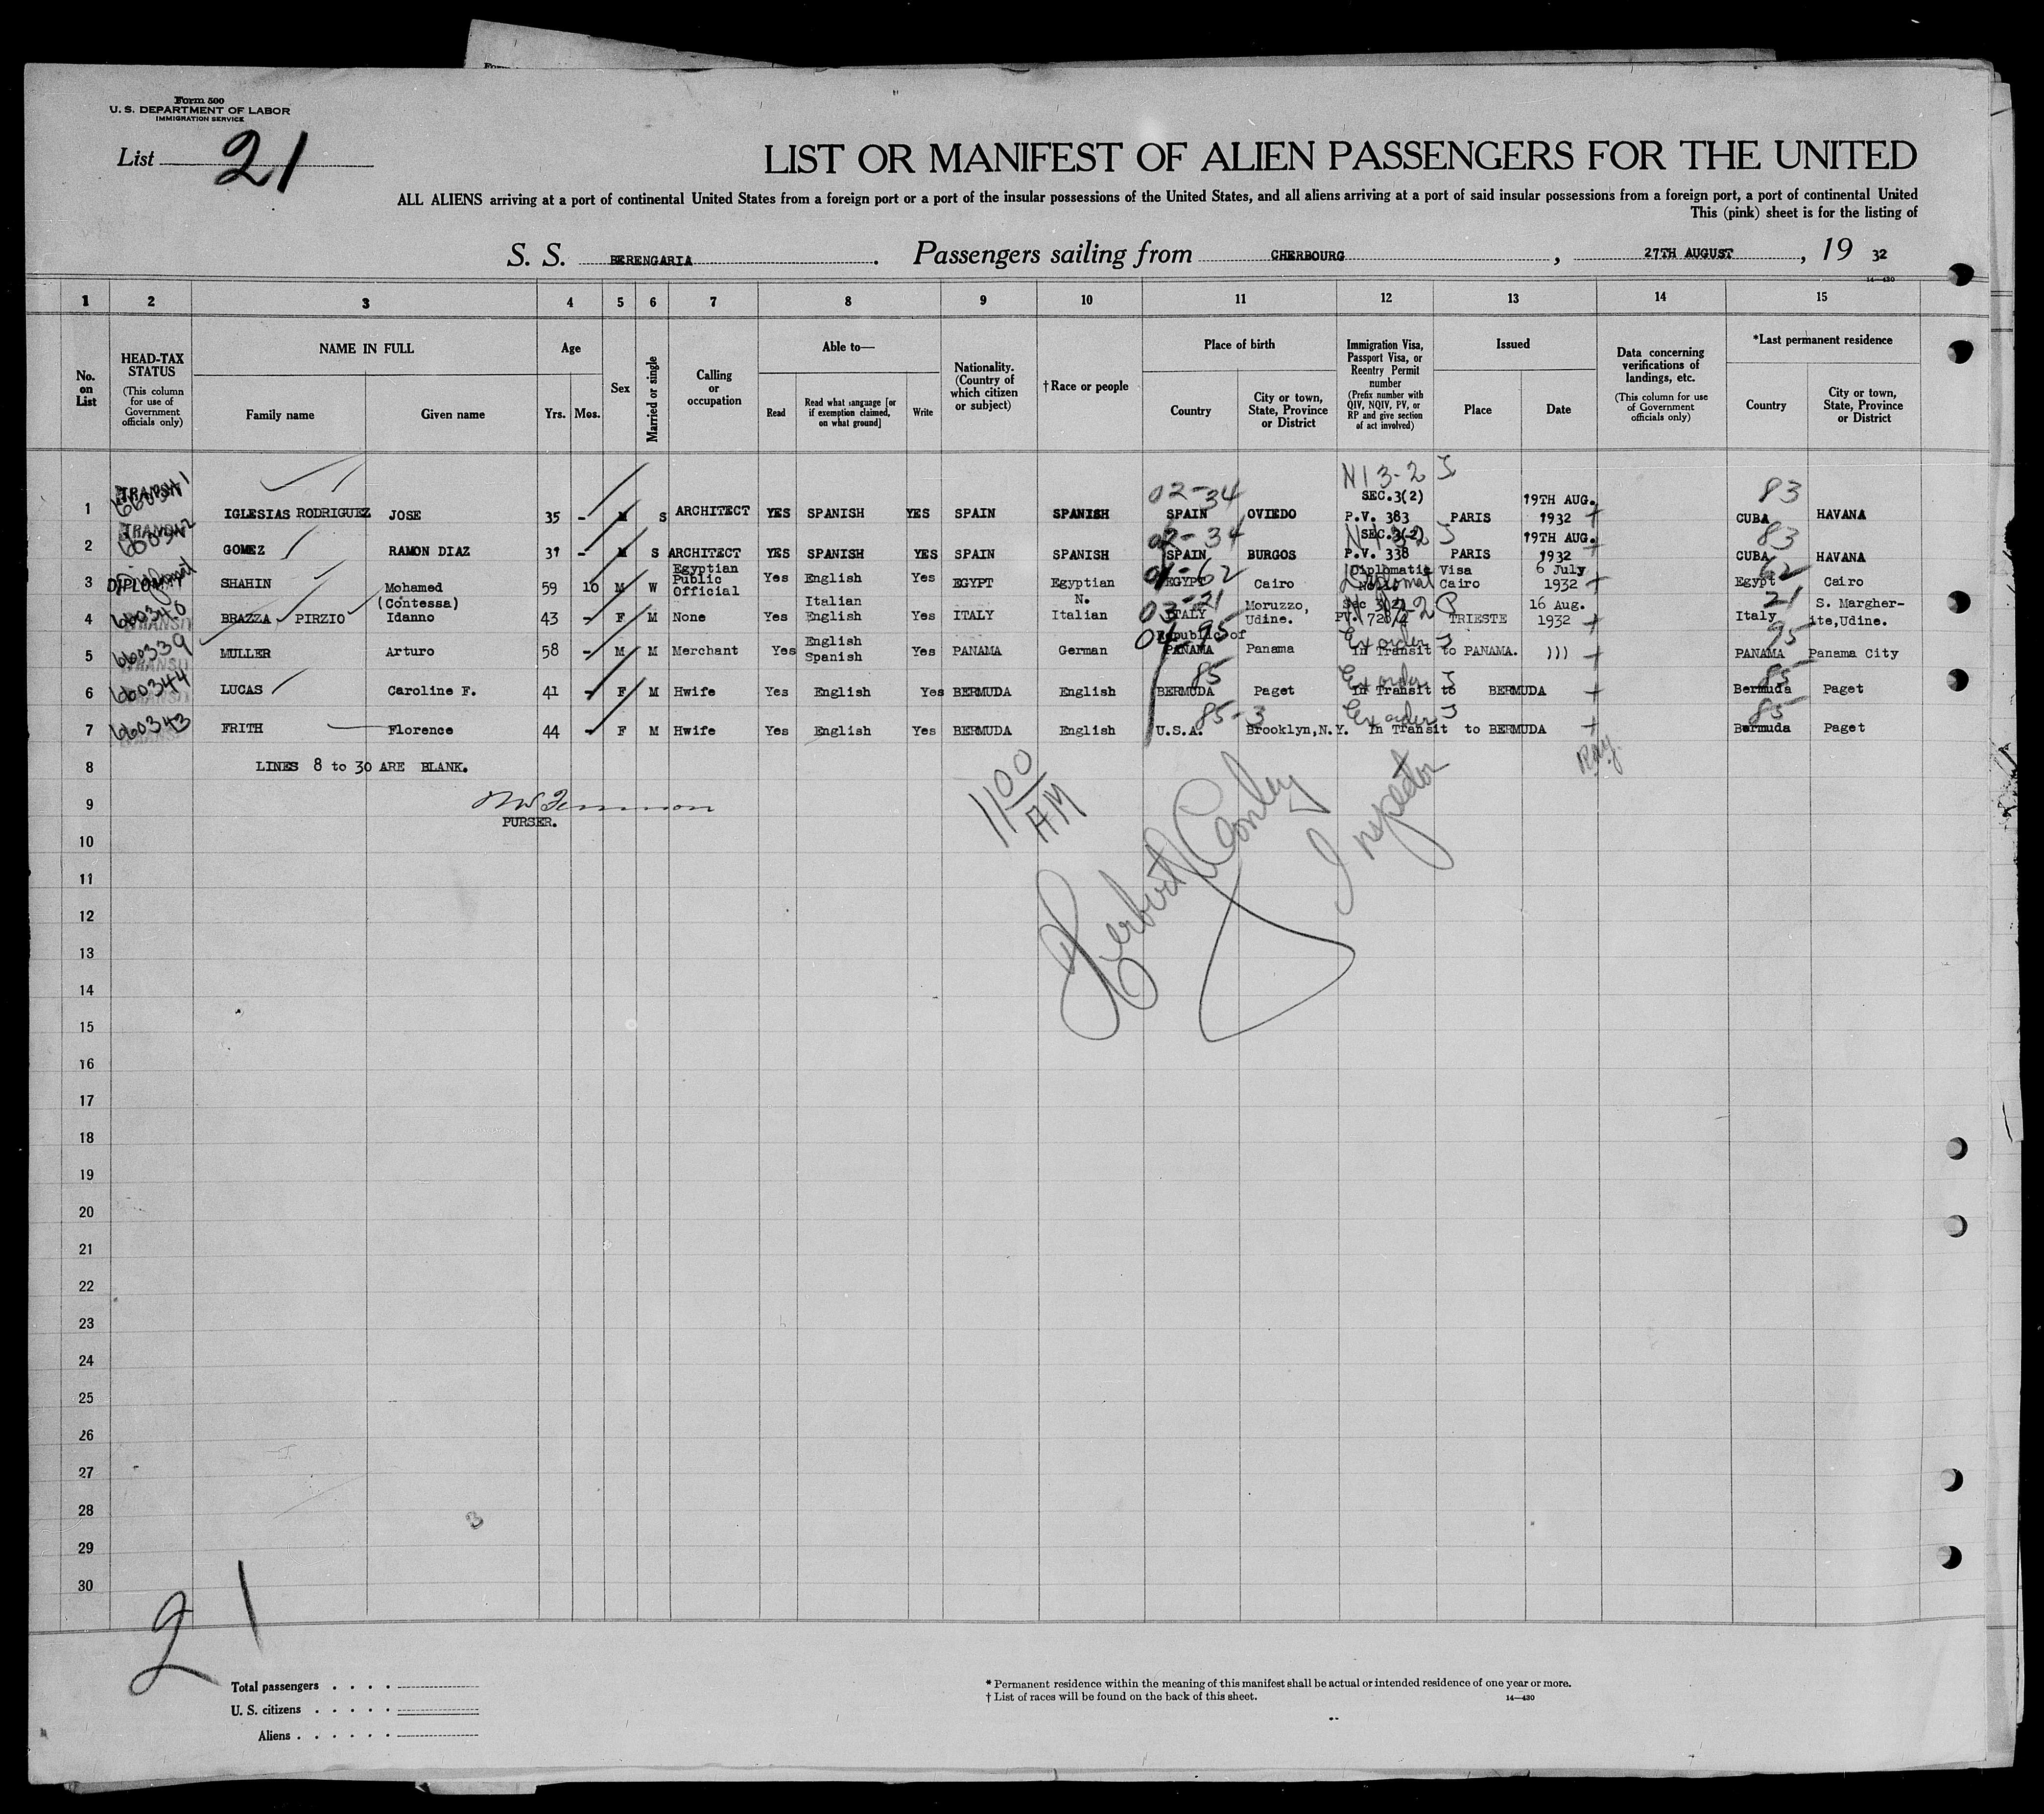 Form 500
U. S. DEPARTMENT OF LABOR
IMMIGRATION SERVICE
List 21
LIST OR MANIFEST OF ALIEN PASSENGERS FOR THE UNITED
ALL ALIENS arriving at a port of continental United States from a foreign port or a port of the insular possessions of the United States, and all aliens arriving at a port of said insular possessions from a foreign port, a port of continental United
This (pink) sheet is for the listing of
S. S. BERENGARIA. Passengers sailing from CHERBOURG, 27TH AUGUST, 19 32
14—430
1 2 3 4 5 6 7 8 9 10 11 12 13 14 15
No. on List
HEAD-TAX STATUS
(This column for use of Government officials only)
NAME IN FULL
Family name Given name
Age
Yrs. Mos.
Sex
Married or single
Calling or occupation
Able to—
Read
Read what language [or if exemption claimed, on what ground]
Write
Nationality. (Country of which citizen or subject)
†Race or people
Place of birth
Country
City or town, State, Province or District
Immigration Visa, Passport Visa, or Reentry Permit number
(Prefix number with QIV, NQIV, PV, or RP and give section of act involved)
Issued
Place Date
Data concerning verifications of landings, etc.
(This column for use of Government officials only)
*Last permanent residence
Country
City or town, State, Province or District
1 TRANSIT 660341 IGLESIAS RODRIGUEZ JOSE 35 - M S ARCHITECT YES SPANISH YES SPAIN SPANISH 02-34 SPAIN OVIEDO N13-2 SEC.3(2) P.V. 383 PARIS 19TH AUG. 1932 + 83 CUBA HAVANA
2 TRANSIT 660342 GOMEZ RAMON DIAZ 31 - M S ARCHITECT YES SPANISH YES SPAIN SPANISH 02-34 SPAIN BURGOS SEC.3(2) P.V. 338 PARIS 19TH AUG. 1932 + 83 CUBA HAVANA
3 DIPLOMAT SHAHIN Mohamed 59 10 M W Egyptian Public Official Yes English Yes EGYPT Egyptian 01-62 EGYPT Cairo Diplomatic Visa Diplomat Cairo 6 July 1932 + 62 Egypt Cairo
4 660340 TRANSIT BRAZZA PIRZIO (Contessa) Idanno 43 - F M None Yes Italian English Yes ITALY N. Italian 03-21 ITALY Moruzzo, Udine. Sec 3(2) PV. TRIESTE 16 Aug. 1932 + 21 Italy S. Margher-ite,Udine.
5 660339 TRANSIT MULLER Arturo 58 - M M Merchant Yes English Spanish Yes PANAMA German 04-95 Republic of PANAMA Panama Ex order In Transit to PANAMA. ))) + 95 PANAMA Panama City
6 660344 TRANSIT LUCAS Caroline F. 41 - F M Hwife Yes English Yes BERMUDA English 85 BERMUDA Paget Ex order In Transit to BERMUDA + 85 Bermuda Paget
7 660343 TRANSIT FRITH Florence 44 - F M Hwife Yes English Yes BERMUDA English 85-3 U.S.A. Brooklyn,N.Y. Ex order In Transit to BERMUDA + 85 Bermuda Paget
8 LINES 8 to 30 ARE BLANK.
9
PURSER.
11 00 AM
Herbert Conley
Inspector
10
11
12
13
14
15
16
17
18
19
20
21
22
23
24
25
26
27
28
3
29
30
21
Total passengers . . . .
U. S. citizens . . . . .
Aliens . . . . . .
* Permanent residence within the meaning of this manifest shall be actual or intended residence of one year or more.
† List of races will be found on the back of this sheet.
14—430